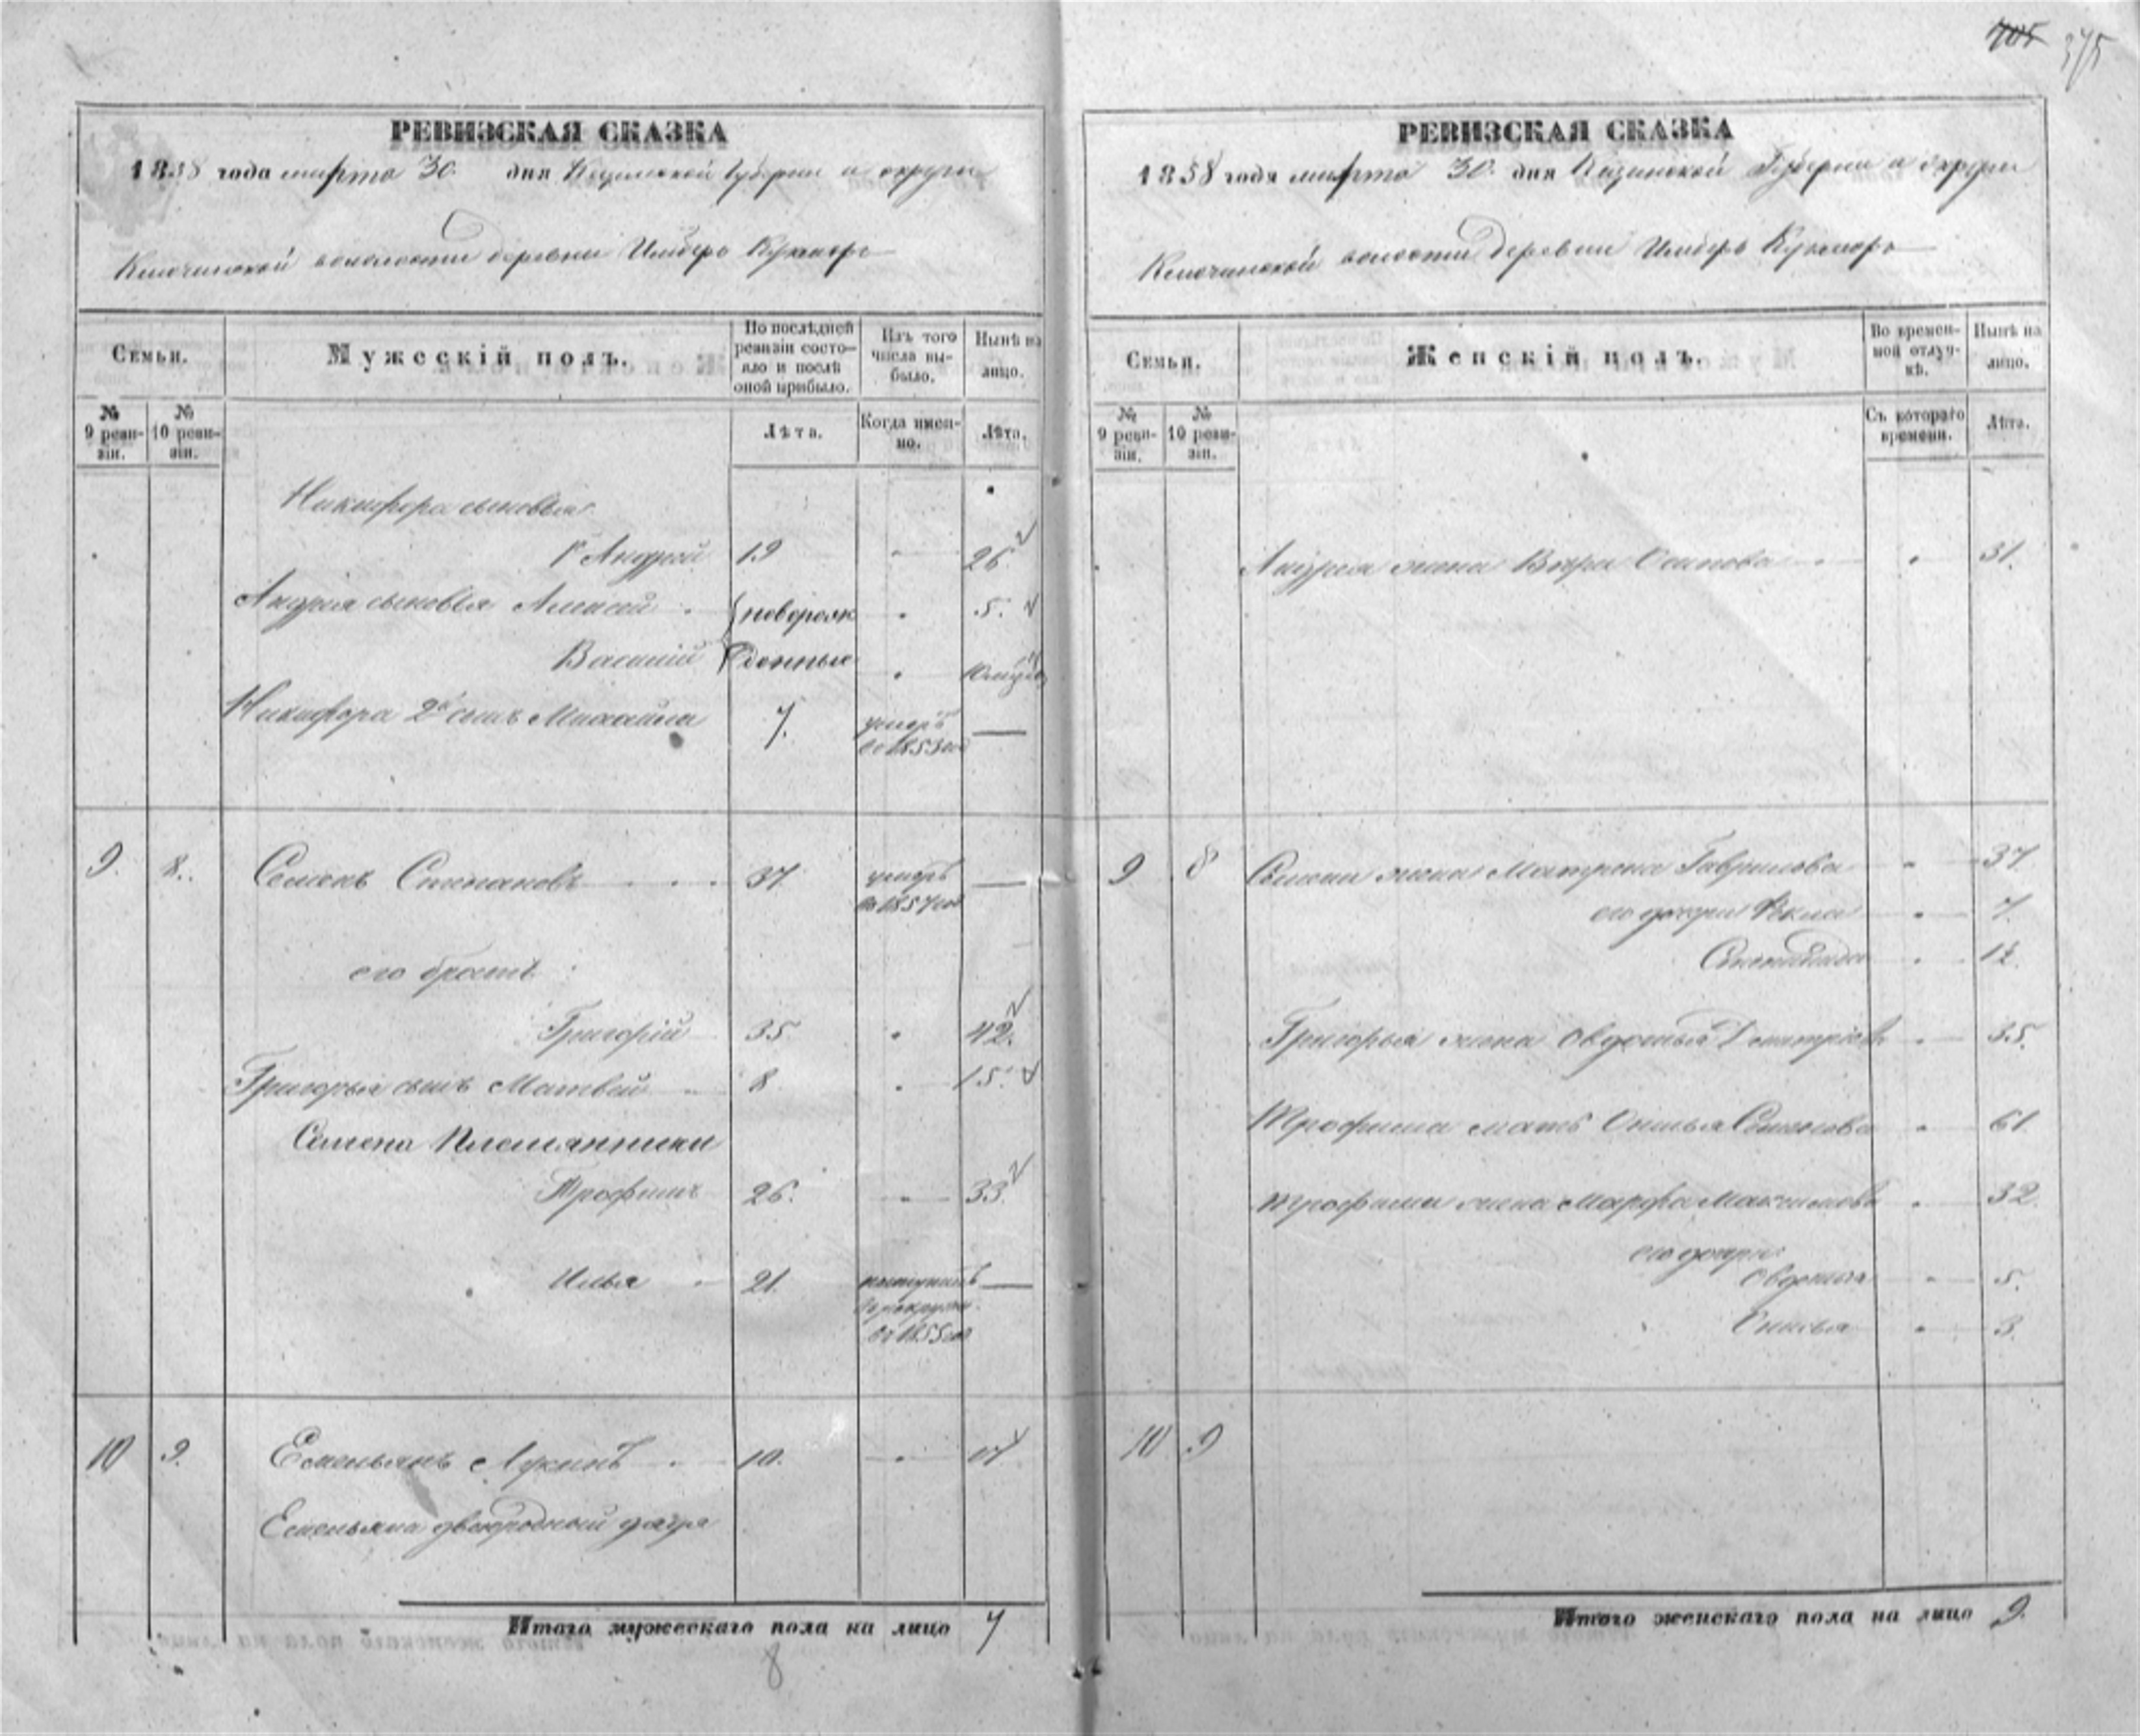 375
РЕВИЗСКАЯ СКАЗКА
1858 года марта 30. дня Казанской Губернии и округи
волости деревни Имберь Кукморъ
Семьи.
Мужескій полъ.
По послѣдней ревизіи состо-
яло и послѣ
оной прибыло.
Изъ того
числа вы-
было.
Нынѣ на
лицо.
№
9 реви-
зіи.
№
10 реви-
зіи.
Лѣта.
Когда имен-
но.
Лѣта.
Никифора сыновья
1й Андрей 19 26
Андрея сыновья Алексей новорож 5.
Василій денные
Никифора 2й сынъ Михайла 7. умеръ
въ 1853 год —
9. 8. Семенъ Степановъ 37 умеръ
въ 1857 год —
его братъ
Григорій 35 42.
Григорья сынъ Матвей 8 15.
Семена Племянники
Трофимъ 26. 33.
Илья 21. поступилъ —
въ рекруты
въ 1855 год
10 9. Емельянъ Лукинъ 10.
Емельяна двоюродный дядя
Итого мужескаго пола на лицо 7
8
РЕВИЗСКАЯ СКАЗКА
1858 года марта 30. дня Казанской Губернии и округи
волости деревни Имберь Кукморъ
Семьи.
Женскій полъ.
Во времен-
ной отлуч-
кѣ.
Нынѣ на
лицо.
№
9 реви-
зіи.
№
10 реви-
зіи.
Съ котораго
времени.
Лѣта.
Андрея жена Вѣра Осипова 31.
9 8 Семена жена Матрена Гаврилова 37
его дочери Фекла 7.
Григорья жена Овдотья Дмитріева 35.
Трофима мать Онисья Семенова 61
Трофима жена Марфа Максимова 32
его дочери
Овдотья 5.
Онисья 3.
10 9
Итого женскаго пола на лицо 9.